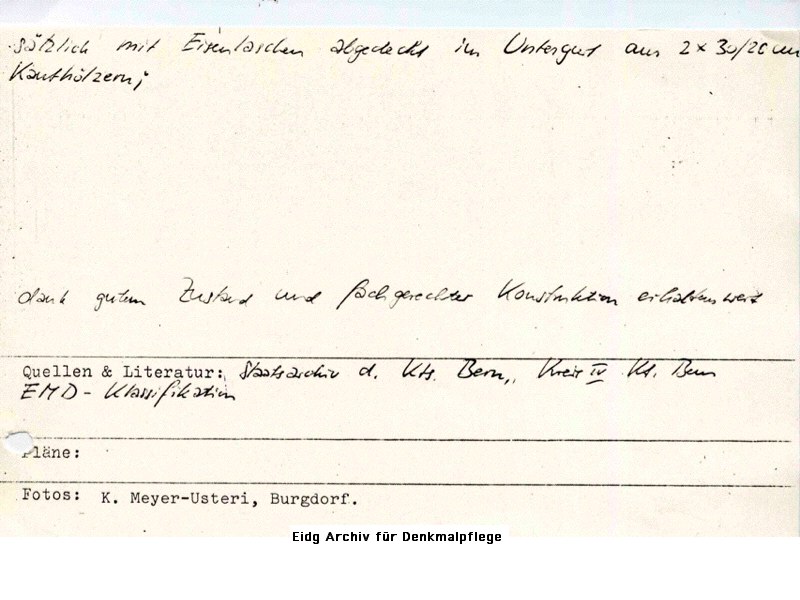 sätzlich mit Eisenlaschen abgedeckt im Untergurt aus 2 x 30/20 cm
Kanthölzern;
dank gutem Zustand und fachgerechter Konstruktion erhaltenswert
Quellen & Literatur: Staatsarchiv d. Kts. Bern,, Kreis IV Kt. Bern
EMD - Klassifikation
Pläne:
Fotos: K. Meyer-Usteri, Burgdorf.
Eidg Archiv für Denkmalpflege